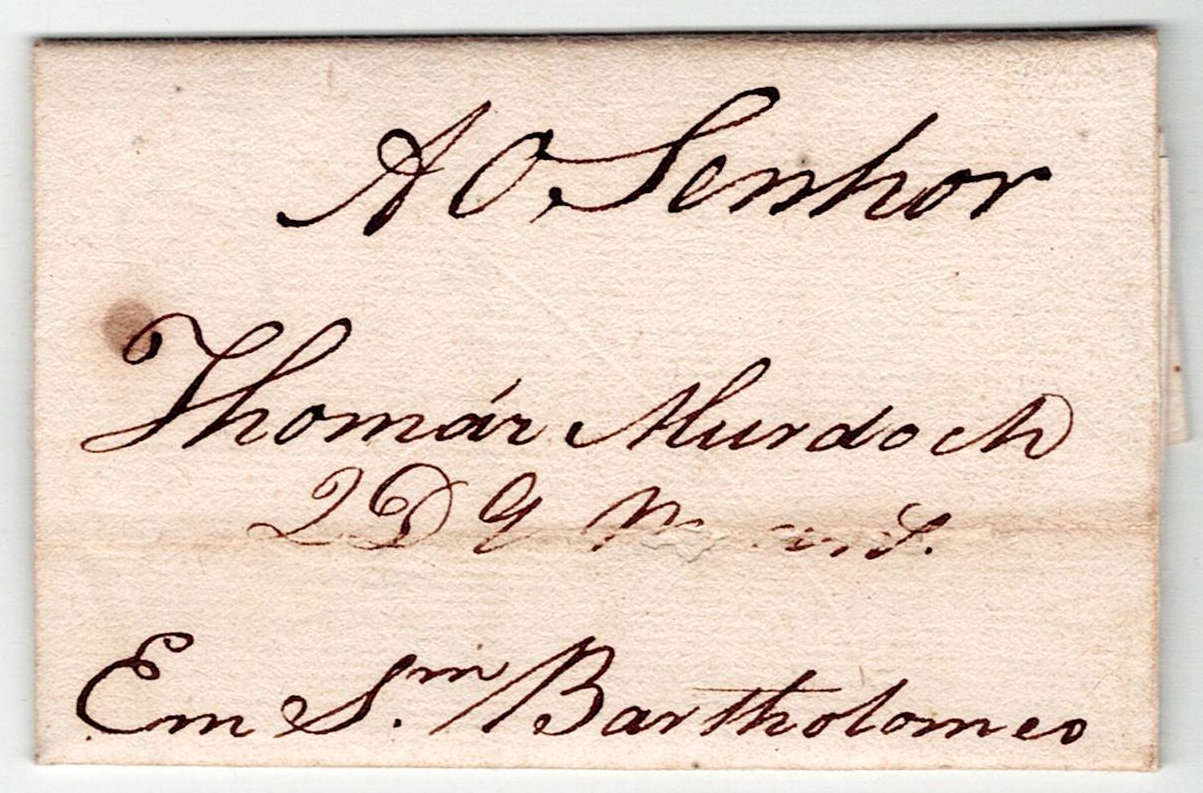 AO Senhor
Thomáz Murdoch
2 D G
Em S.m Bartholomeo